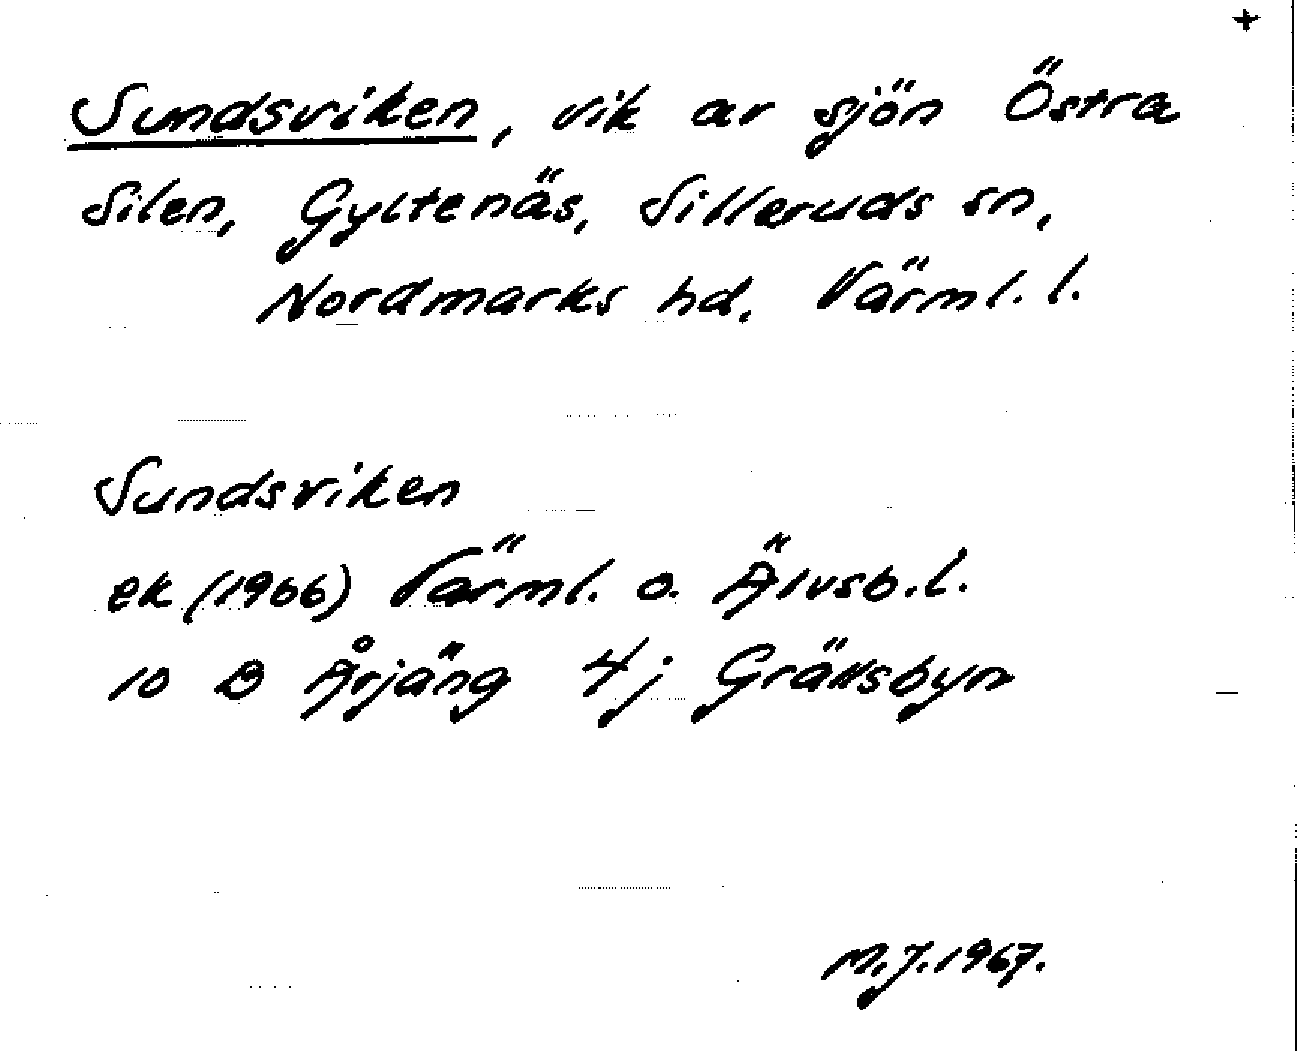 +
Sundsviken, vik av sjön Östra
Silen, Gyltenäs, Silleruds sn,
Nordmarks hd. Värml. l.
Sundsviken
ek (1966) Värml. o. Älvsb. l.
10 B Årjäng 4j Gräsbyn
M.J. 1967.